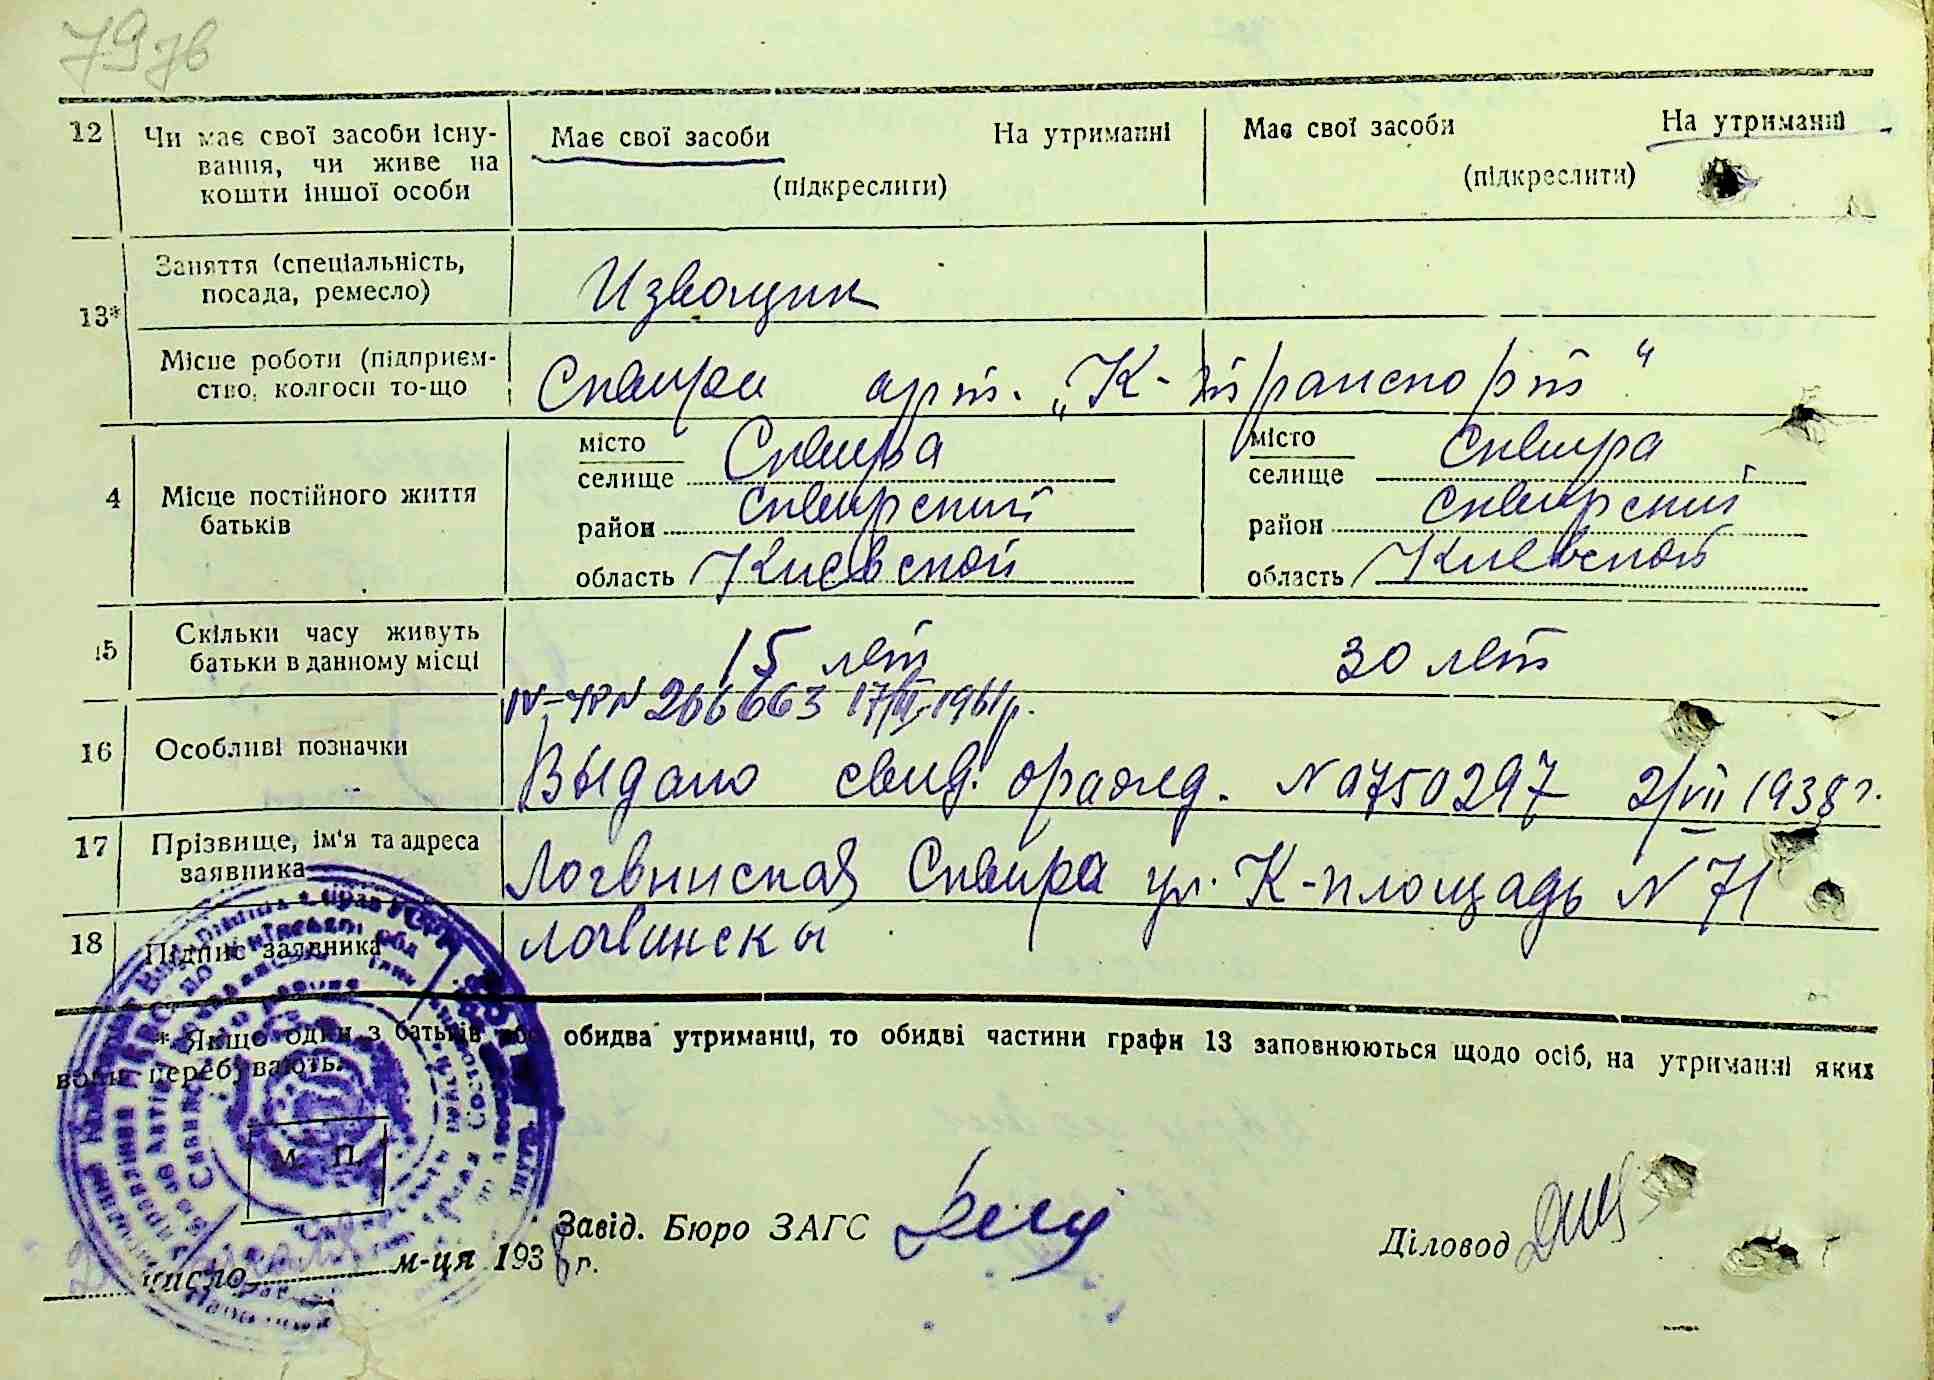 79 зв
12 Чи має свої засоби існу- Має свої засоби На утриманні Має свої засоби На утриманні
вання, чи живе на (підкреслити) (підкреслити)
кошти іншої особи
13* Заняття (спеціальність, Извощик
посада, ремесло)
Місце роботи (підприєм- Сквира арт. „К-транспорт“
ство, колгосп то-що
4 Місце постійного життя місто Сквира місто Сквира
батьків селище селище
район Сквирский район Сквирский
область Киевской область Киевской
15 Скільки часу живуть 15 лет 30 лет
батьки в данному місці
N 266663 1961р.
16 Особливі позначки Выдано свид. о ражд. N 0750297 2/VII 1938 г.
17 Прізвище, ім'я та адреса Логвинская Сквира ул. К-площадь N 71
заявника
18 Підпис заявника Логвинска
* Якщо один з батьків або обидва утриманці, то обидві частини графи 13 заповнюються щодо осіб, на утриманні яких
вони перебувають.
М. П.
Завід. Бюро ЗАГС Діловод
число м-ця 1938 г.